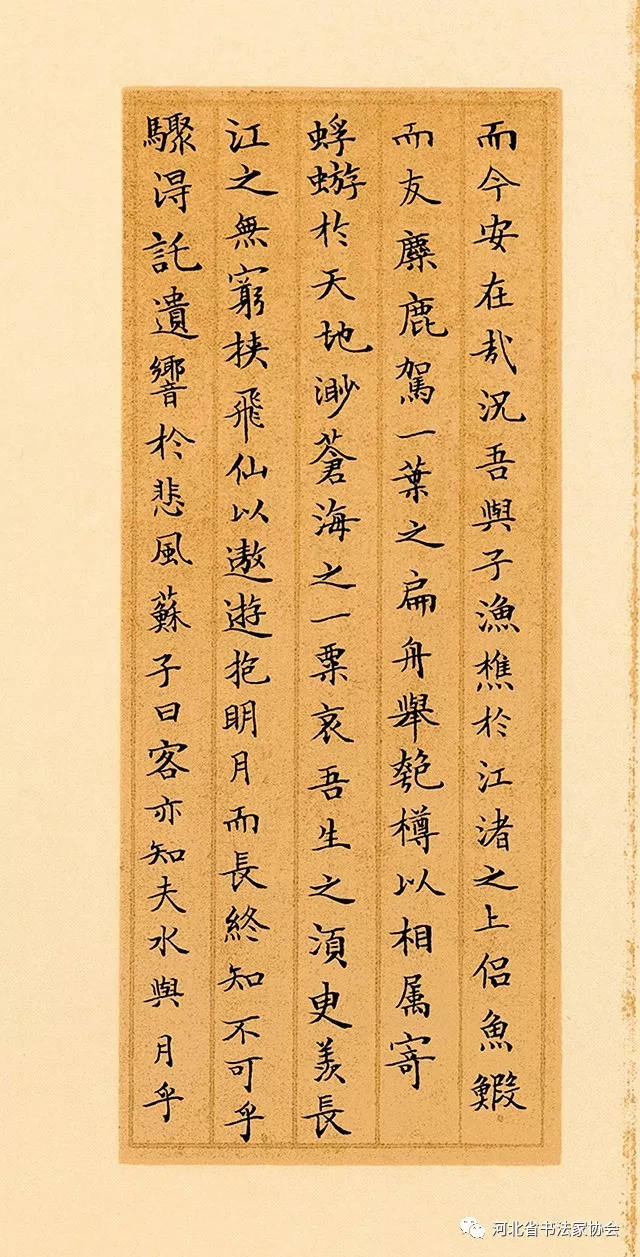 而今安在哉況吾與子漁樵於江渚之上侶魚鰕
而友麋鹿駕一葉之扁舟舉匏樽以相属寄
蜉蝣於天地渺蒼海之一粟哀吾生之湏臾羨長
江之無窮挟飛仙以遨遊抱明月而長終知不可乎
驟得託遺響於悲風蘇子曰客亦知夫水與月乎
河北省书法家协会